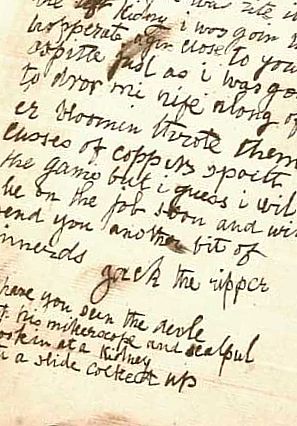 the left kidny i was goin
hopperate agin close to your
ospitle just as i was goi
to dror mi nife along of
er bloomin throte them
cusses of coppers spoilt
the game but i guess i wil
be on the job soon and wil
send you another bit of
innerds
Jack the ripper
have you seen the devle
his mikerscope and scalpul
ookin at a kidney
a slide cocked up